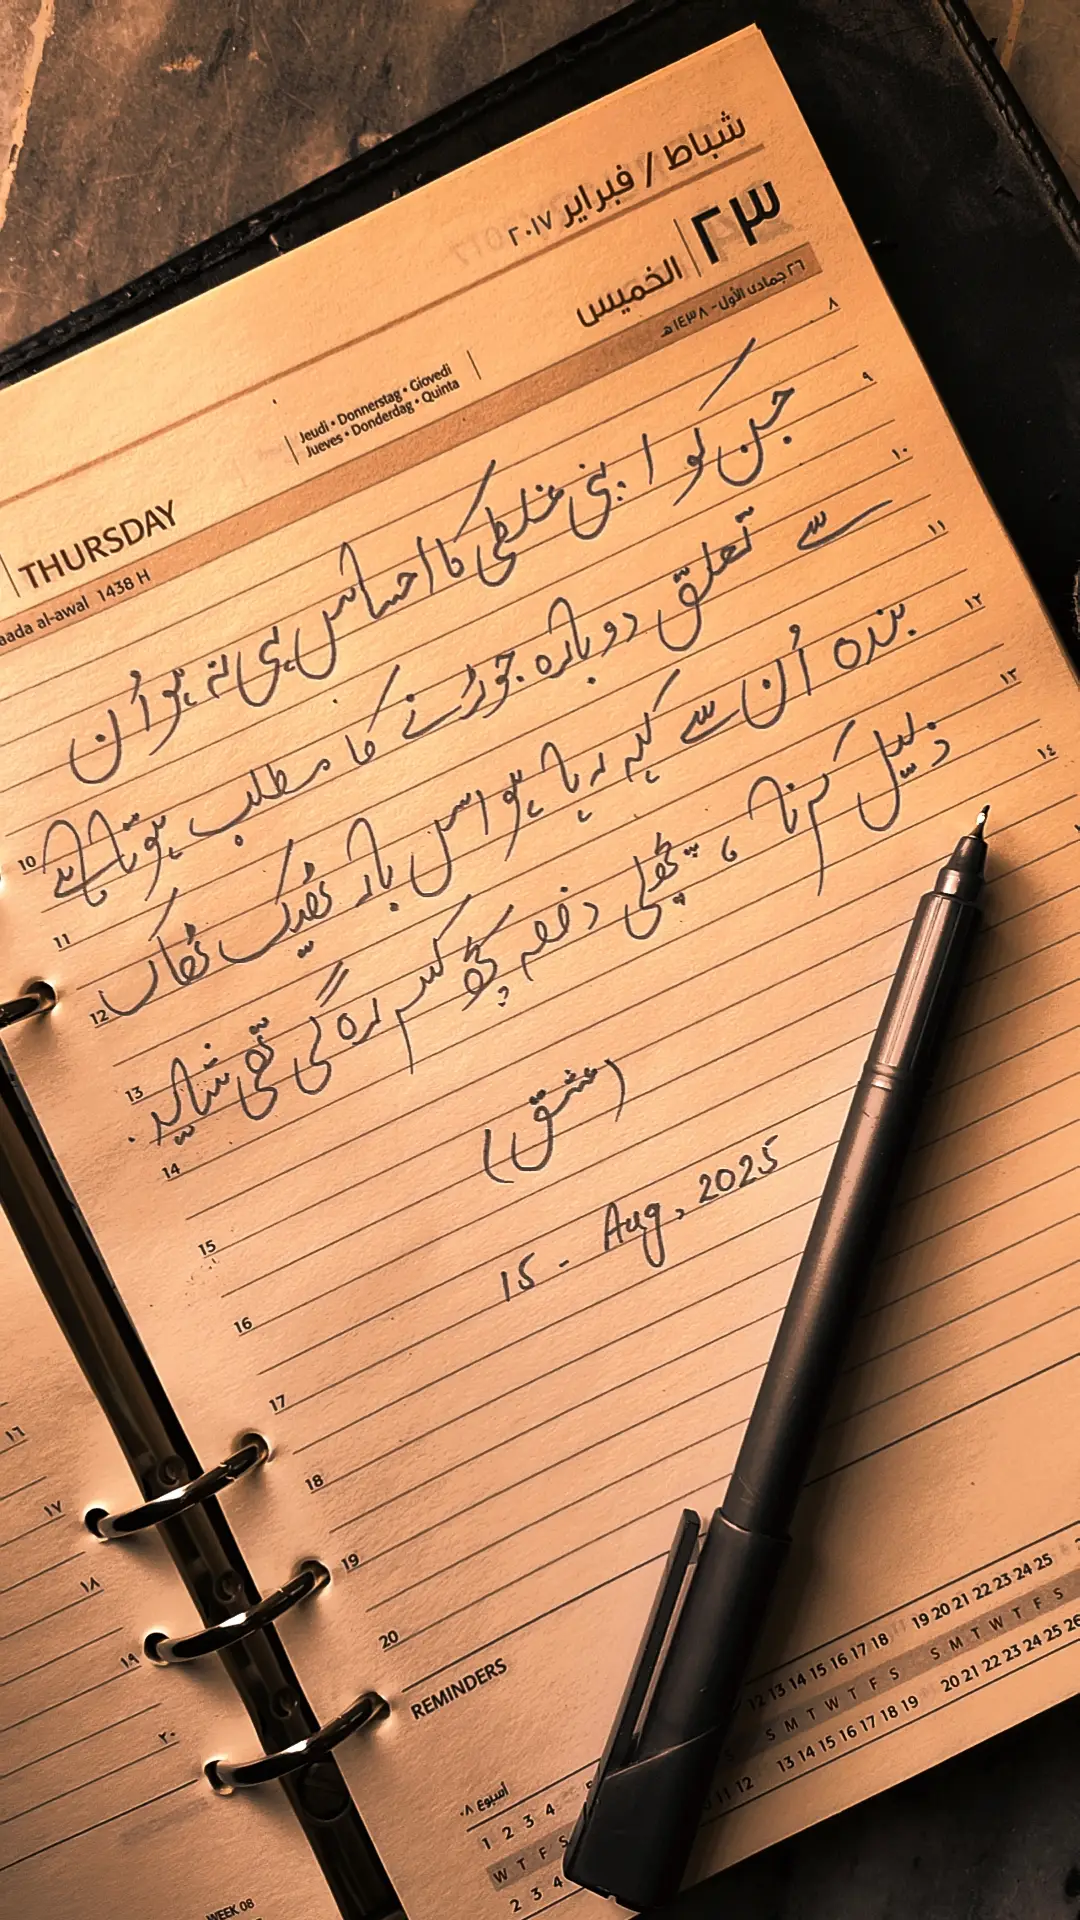 شباط / فبراير ٢٠١٧
٢٣ الخميس
٢٦ جمادى الأول - ١٤٣٨ هـ
Jeudi • Donnerstag • Giovedi
Jueves • Donderdag • Quinta
THURSDAY
aada al-awal 1438 H
جن کو اپنی غلطی کا احساس ہی نہ ہو اُن
سے تعلق دوبارہ جوڑنے کا مطلب ہوتا ہے
بندہ اُن سے کہہ رہا ہو اس بار ٹھیک ٹھاک
ذلیل کرنا، پچھلی دفعہ کچھ کسر رہ گئی تھی شاید.
(عشق)
15 - Aug, 2025
٨
٩
١٠
١١
١٢
١٣
١٤
10
11
12
13
14
15
16
17
18
19
20
REMINDERS
١٦
١٧
١٨
١٩
٢٠
WEEK 08
أسبوع ٠٨
1 2 3 4
W T F S
2 3 4
12 13 14 15 16 17 18
19 20 21 22 23 24 25
S M T W T F S
S M T W T F S
11 12
13 14 15 16 17 18 19
20 21 22 23 24 25 26